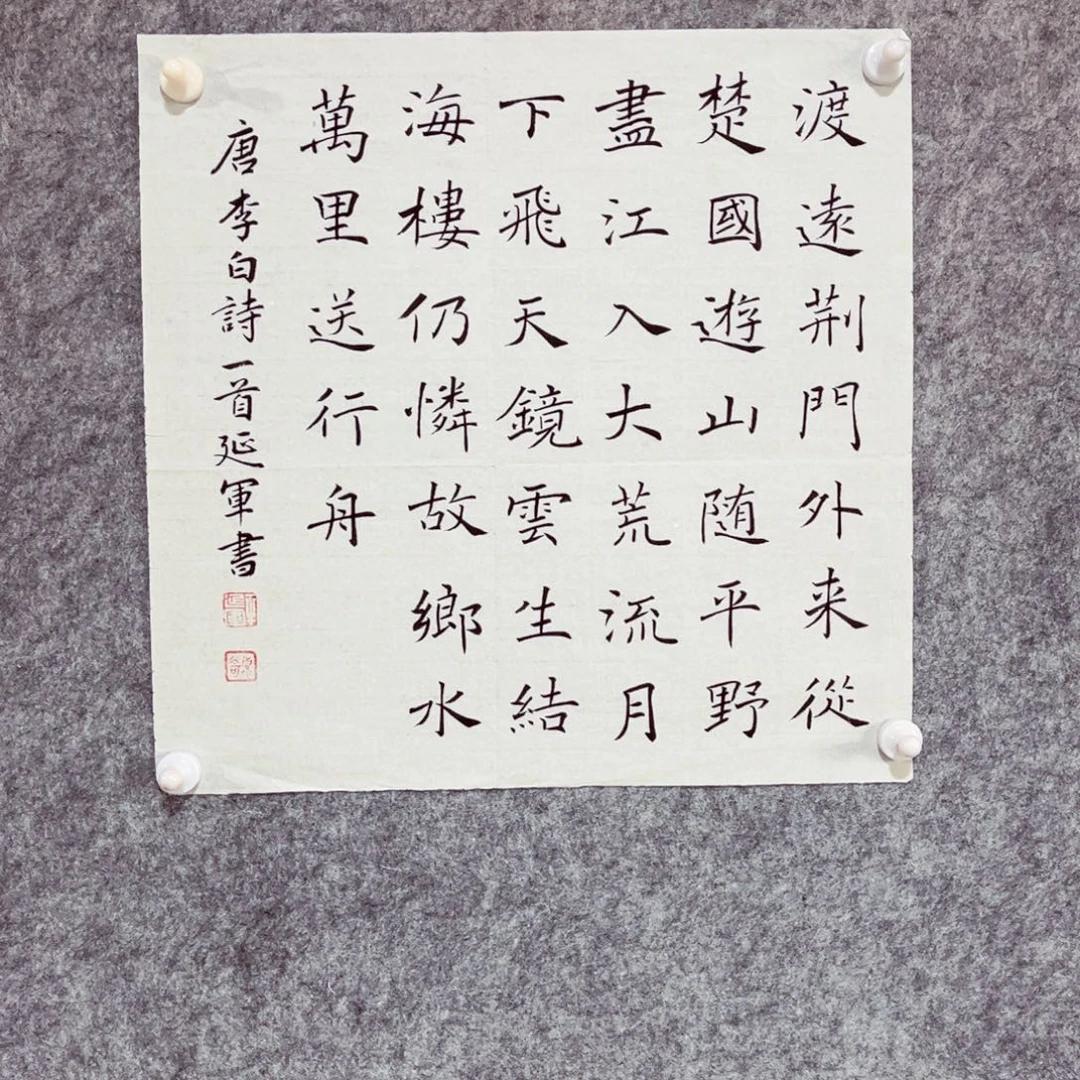 渡遠荆門外来從
楚國遊山随平野
盡江入大荒流月
下飛天鏡雲生結
海樓仍憐故鄉水
萬里送行舟
唐李白詩一首延軍書